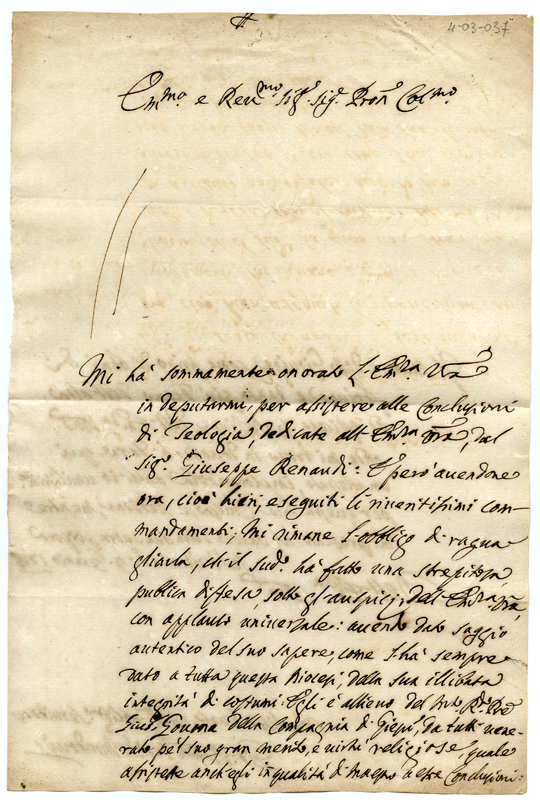 4-03-037
Em.mo e Reu.mo Sig.r Sig.r Pron.e Col.mo
Mi hà sommamente onorato l'Em.za V.ra
in deputarmi, per assistere alle Conclusioni
di Teologia, dedicate all'Em.za V.ra, dal
Sig.r Giuseppe Renaudi: E però auendone
ora, cioè hieri, eseguiti li riueritissimi com-
mandamenti, mi rimane l'obbligo di ragua
gliarla, ch'il sud.o hà fatto una strepitosa
publica diffesa, sotto gl'auspicj dell'Em.za V.ra,
con applauso uniuersale: auendo dato saggio
autentico del suo sapere, come l'hà sempre
dato a tutta questa Diocesi, della sua illibata
integrità di costumi. Egli è allieuo del M.to R.do P.re
Gouerna della Compagnia di Giesù, da tutti uene-
rato pe'l suo gran merito, e uirtù religiose, quale
assistette anch'egli in qualità di Maestro a esse Conclusioni: